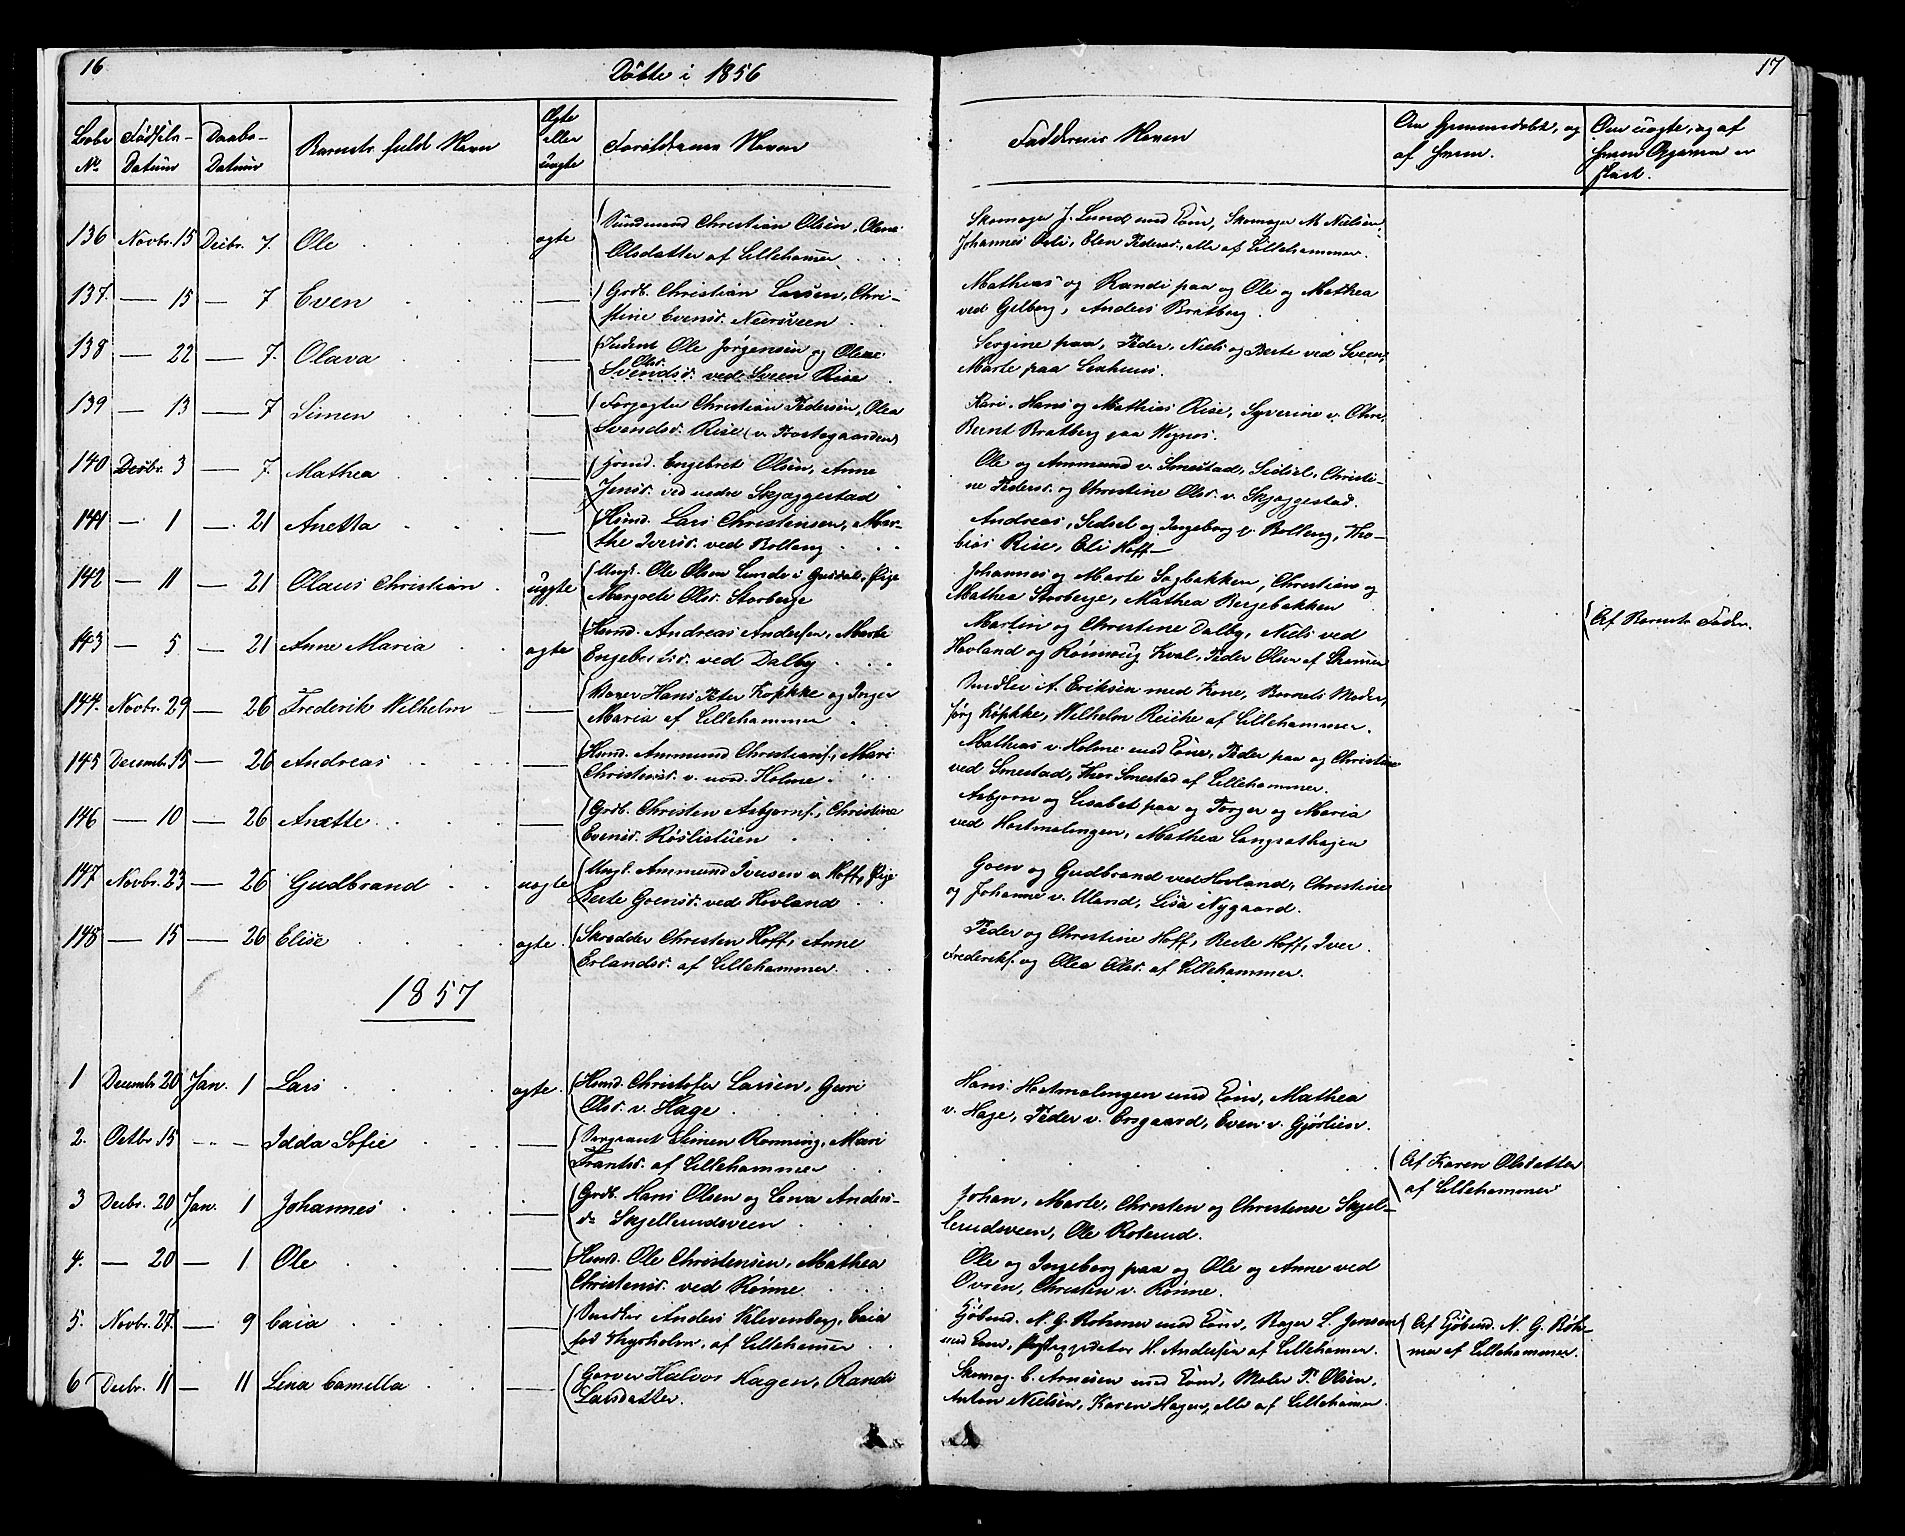 16
Döbte i 1856
17
Løbe No.
Fødsels-Datum
Daabs-Datum
Barnets fulde Navn
Ægte eller uægte
Forældrenes Navne
Faddernes Navne
Om Hjemmedøbt, og af hvem.
Om uægte, og af hvem Opgaven er skeet.
136 Novbr. 15 Decbr. 7. Ole ægte Christian Olsen, Olene
Olsdatter af Lillehamer
Skomager J. Lund med Kone, Skomager M. Nielsen,
Johannes Elen Pedersd., alle af Lillehammer.
137. — 15 — 7 Even — Grdb. Christian Larsen, Chri-
stine Evensd. Neersveen
Mathias og Randi paa og Ole og Mathea
ved Gilberg, Anders Bratberg.
138 — 22 — 7. Olava — Ole Jørgensen og Olene
Olsd. Svendsd. ved Sveen Rise
Sergine paa, Peder, Niels og Berte ved Sveen,
Marte paa
139 — 13 — 7 Simen — Forpagter Christian Pedersen, Olea
Svendsd. Rise (v. Prestegaarden)
Kari, Hans og Mathias Rise, Syverine v.
Bernt Bratberg paa Vignes.
140 Decbr. 3 — 7. Mathea — Engebret Olsen, Anne
Jensd. ved nedre Skjæggestad
Ole og Ammund v. Smestad, Sidsel, Christi-
ne Pedersd. og Christine Olsd. v. Skjæggestad.
141 — 1 — 21 Anetta — Huusmd. Lars Christensen, Mar-
the Iversd. ved Bolleng
Andreas, Sidsel og Ingeborg v. Bolleng, Tho-
bias Rise, Eli Hoff —
142 — 11 — 21 Olaus Christian uægte Ungk. Ole Olsen Lunde i Gusdal, Pige
Margrete Olsd. Storberge
Johannes og Marte Sagbakken, Christian og
Mathea Storberge, Mathea Bergebakken
Af Barnets Fader.
143 — 5 — 21 Anne Maria ægte Andreas Andersen, Marte
Engebretsd. ved Dalby
Marten og Christine Dalby, Niels ved
Hovland og Rønnoug Kval, Peder Olsen af
144. Novbr. 29 — 26 Frederik Wilhelm — Hans Peter Köpkke og Inger
Maria af Lillehammer
A. Eriksen med Kone, Barnets Moder,
Jörg Köpkke, Wilhelm Reiche af Lillehammer.
145 Decembr. 15 — 26 Andreas — Ammund Christiansf., Mari
Christensd. v. nord. Holme
Mathias v. Holme med Kone, Peder paa og Christine
ved Smestad, Thor Smestad af Lillehammer.
146 — 10 — 26 Anette — Grdb. Christen Asbjørnsf., Christine
Evensd. Röslistuen
Asbjørn og Lisabet paa og Torger og Maria
ved Hortmolingen, Mathea Langsethagen
147 Novbr. 23 — 26 Gudbrand uægte Ungk. Ammund Iversen v. Hoff, Pige
Berte Goensd. ved Hovland
Goen og Gudbrand ved Hovland, Christine
og Johanne v. Uland, Lisa Nygaard.
148 — 15 — 26 Elise ægte Skredder Christen Hoff, Anne
Erlandsd. af Lillehammer
Peder og Christine Hoff, Berte Hoff, Iver
Frederiksf. og Olea Olsd. af Lillehammer.
1857
1 Decembr. 20 Jan. 1 Lars ægte Christofer Larsen, Guri
Olsd. v. Hage
Hans Hortmolingen med Kone, Mathea
v. Hage, Peder v. Ersgaard, Even v. Gjørlien.
2. Octbr. 15 Idda Sofie — Sergeant Simen Rønning, Mari
Frantsd. af Lillehammer
Af Karen Olsdatter
af Lillehammer
3 Decbr. 20 Jan. 1 Johannes Grdb. Hans Olsen og Lena Anders-
d. Skjellerudsveen
Johan, Marte, Christen og Christense Skjel-
lerudsveen, Ole Roterud.
4. — 20 — 1 Ole — Ole Christensen, Mathea
Christensd. ved Rønne
Ole og Ingeborg paa og Ole og Anne ved
Ovren, Christen v. Rønne.
5. Novbr. 27. — 9 Caia — Anders Klevenberg, Caia
fød Thyrholm, af Lillehamer
Kjøbmd. N. G. Röhmer med Kone, Bager S. Jensen
med Kone, H. Andersen af Lillehamer.
Af Kjøbmd. N. G. Röh-
mer af Lillehammer.
6 Decbr. 11 — 11 Lina Camilla — Garver Halvor Hagen, Randi
Larsdatter.
Skomag. C. Arnesen med Kone, Maler P. Olsen,
Anton Nielsen, Karen Hagen, alle af Lillehamer.